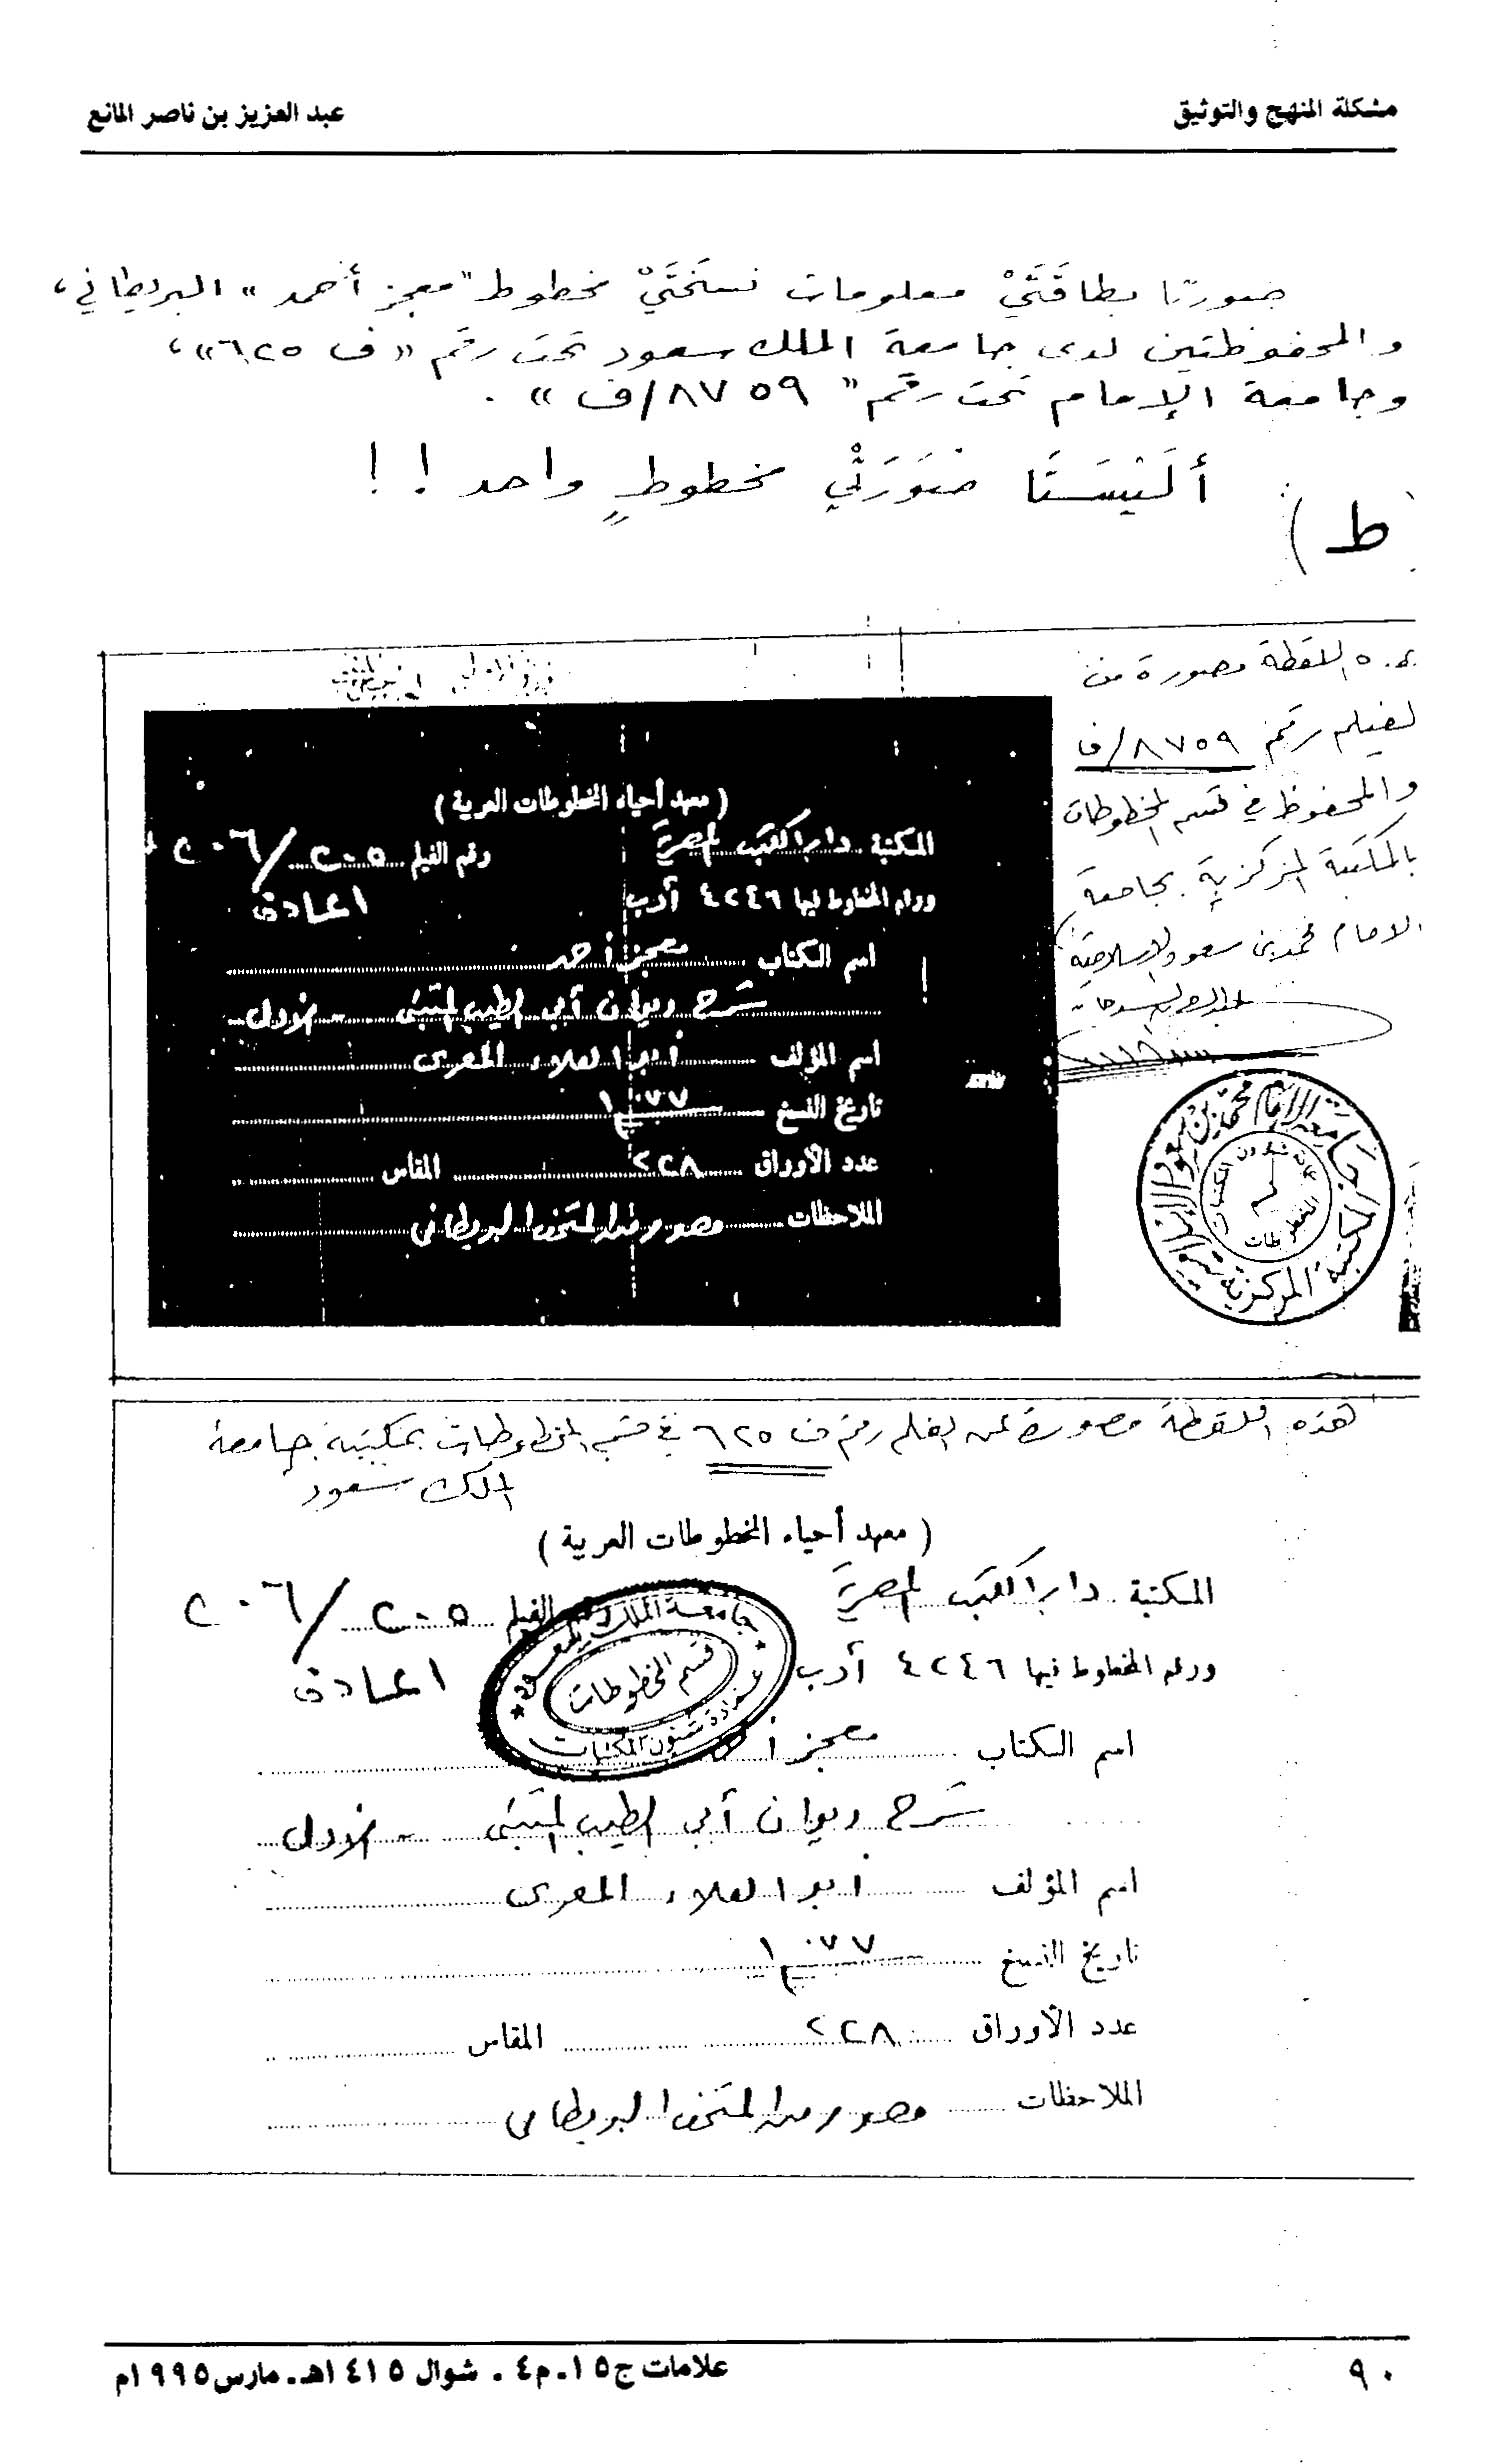 مشكلة المنهج والتوثيق
عبد العزيز بن ناصر المانع
صورتا بطاقَتَيْ معلومات نسختَيْ مخطوط "معجز أحمد" البريطاني،
والمحفوظتين لدى جامعة الملك سعود تحت رقم "ف ٦٢٥"،
وجامعة الإمام تحت رقم "٨٧٥٩/ف".
أَلَيْسَتَا صُوَرَتَيْ مخطوطٍ واحد !!
ط)
هذه اللقطة مصورة من
الفيلم رقم ٨٧٥٩/ف
والمحفوظ في قسم المخطوطات
بالمكتبة المركزية بجامعة
الامام محمد بن سعود الإسلامية
جامعة الإمام محمد بن سعود الإسلامية
المكتبة المركزية
عمادة شئون المكتبات
المخطوطات
(معهد أحياء المخطوطات العربية)
المكتبة دار الكتب المصرية
رقم الفيلم ٢٠٥/٢٠٦
ورقم المخطوط فيها ٤٢٤٦ أدب
اعادة
اسم الكتاب معجز أحمد
شرح ديوان أبي الطيب المتنبي - الأول
اسم المؤلف أبو العلاء المعري
تاريخ النسخ ١٠٧٧
عدد الأوراق ٢٢٨ المقاس
الملاحظات مصور من المتحف البريطاني
هذه اللقطة مصورة من الفلم رقم ف ٦٢٥ في قسم المخطوطات بمكتبة جامعة
الملك سعود
(معهد أحياء المخطوطات العربية)
المكتبة دار الكتب المصرية
الفيلم ٢٠٥/٢٠٦
جامعة الملك سعود
قسم المخطوطات
عمادة شئون المكتبات
ورقم المخطوط فيها ٤٢٤٦ أدب
اعادة
اسم الكتاب معجز
شرح ديوان أبي الطيب المتنبي - الأول
اسم المؤلف أبو العلاء المعري
تاريخ النسخ ١٠٧٧
عدد الأوراق ٢٢٨ المقاس
الملاحظات مصور من المتحف البريطاني
٩٠
علامات ج١٥. م٤ . شوال ١٤١٥هـ. مارس ١٩٩٥م